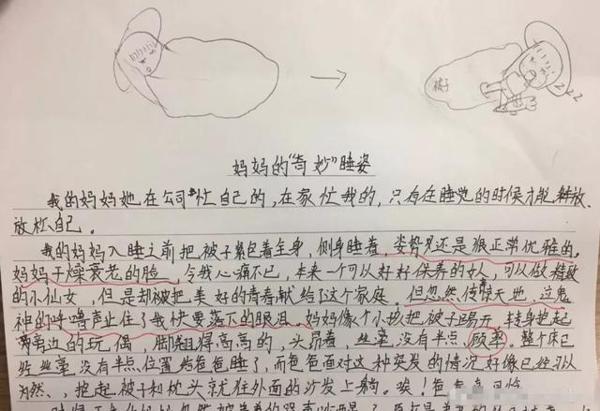 被子
zzz
妈妈的“奇妙”睡姿
我的妈妈她在公司忙自己的,在家忙我的,只有在睡觉的时候才能释放、
放松自己。
我的妈妈入睡之前把被子紧包着全身,侧身睡着,姿势还是很正常优雅的,
妈妈干燥衰老的脸,令我心痛不已,本来一个可以好好保养的女人,可以做精致
的小仙女,但是却被把美好的青春献给了这个家庭。但忽然传惊天地,泣鬼
神的呼噜声止住了我快要落下的眼泪。妈妈像个小孩把被子踢开,转身抱起
旁边的玩偶,脚翘得高高的,头昂着,丝毫没有半点顾虑。整个床已
然丝毫没有半点位置给爸爸睡了,而爸爸面对这种突发的情况好像已经习以
为然、,抱起被子和枕头就往外面的沙发上躺。唉!爸爸真可怜